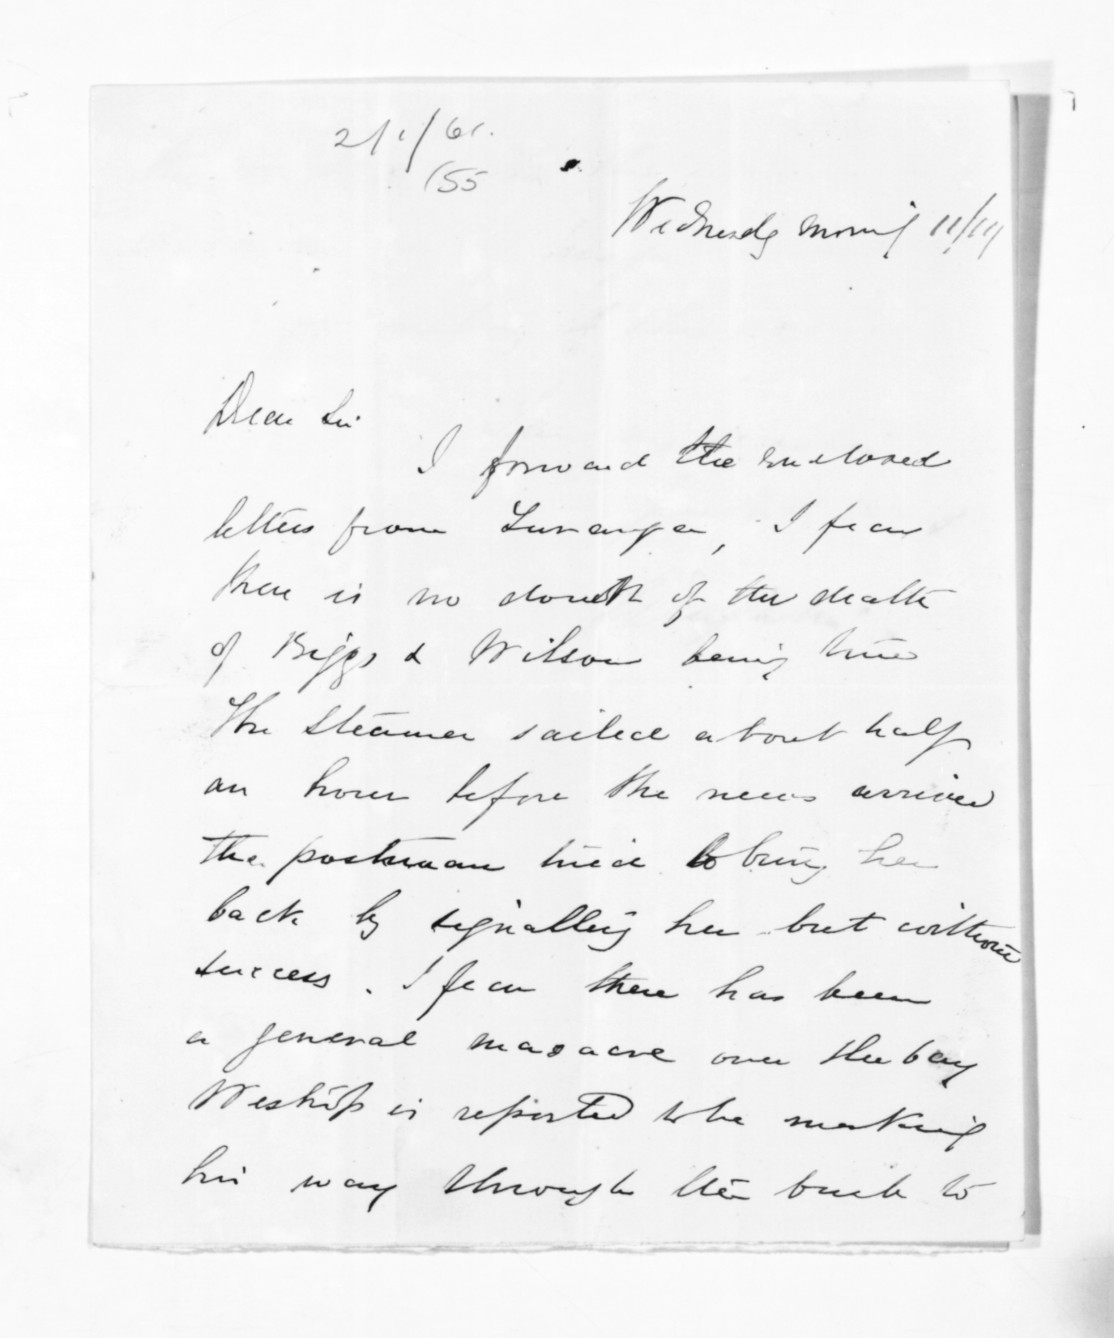 2/1/61.
155
Wednesdy morning 11/11
Dear Sir
I forward the enclosed
letters from Turanga, I fear
there is no doubt of the death
of Biggs & Wilson being true
The steamer sailed about half
an hour before the news arrived
the postman tried to bring her
back by signalling her but without
success. I fear there has been
a general masacre over the bay
Westrup is reported to be making
his way through the bush to